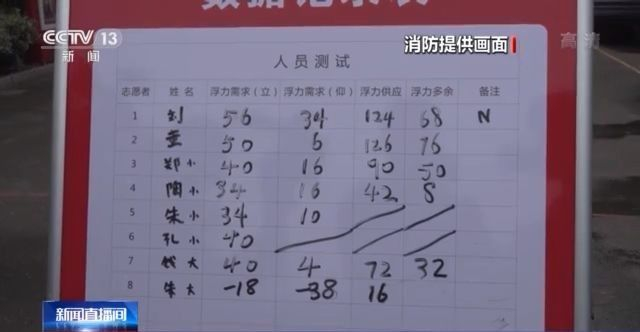 数据记录表
CCTV 13
新闻
消防提供画面
高清
人员测试
志愿者 姓名 浮力需求（立） 浮力需求（仰） 浮力供应 浮力多余 备注
1 刘 56 34 124 68 N
2 董 50 6 126 76
3 郑小 40 16 90 50
4 陶小 34 16 42 8
5 朱小 34 10
6 孔小 40
7 钱大 40 4 72 32
8 朱大 -18 -38 16
新闻直播间